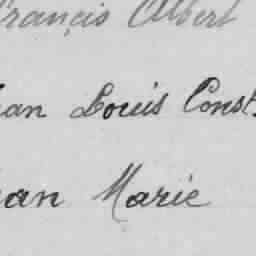 François Albert
Jean Louis Const
Jean Marie